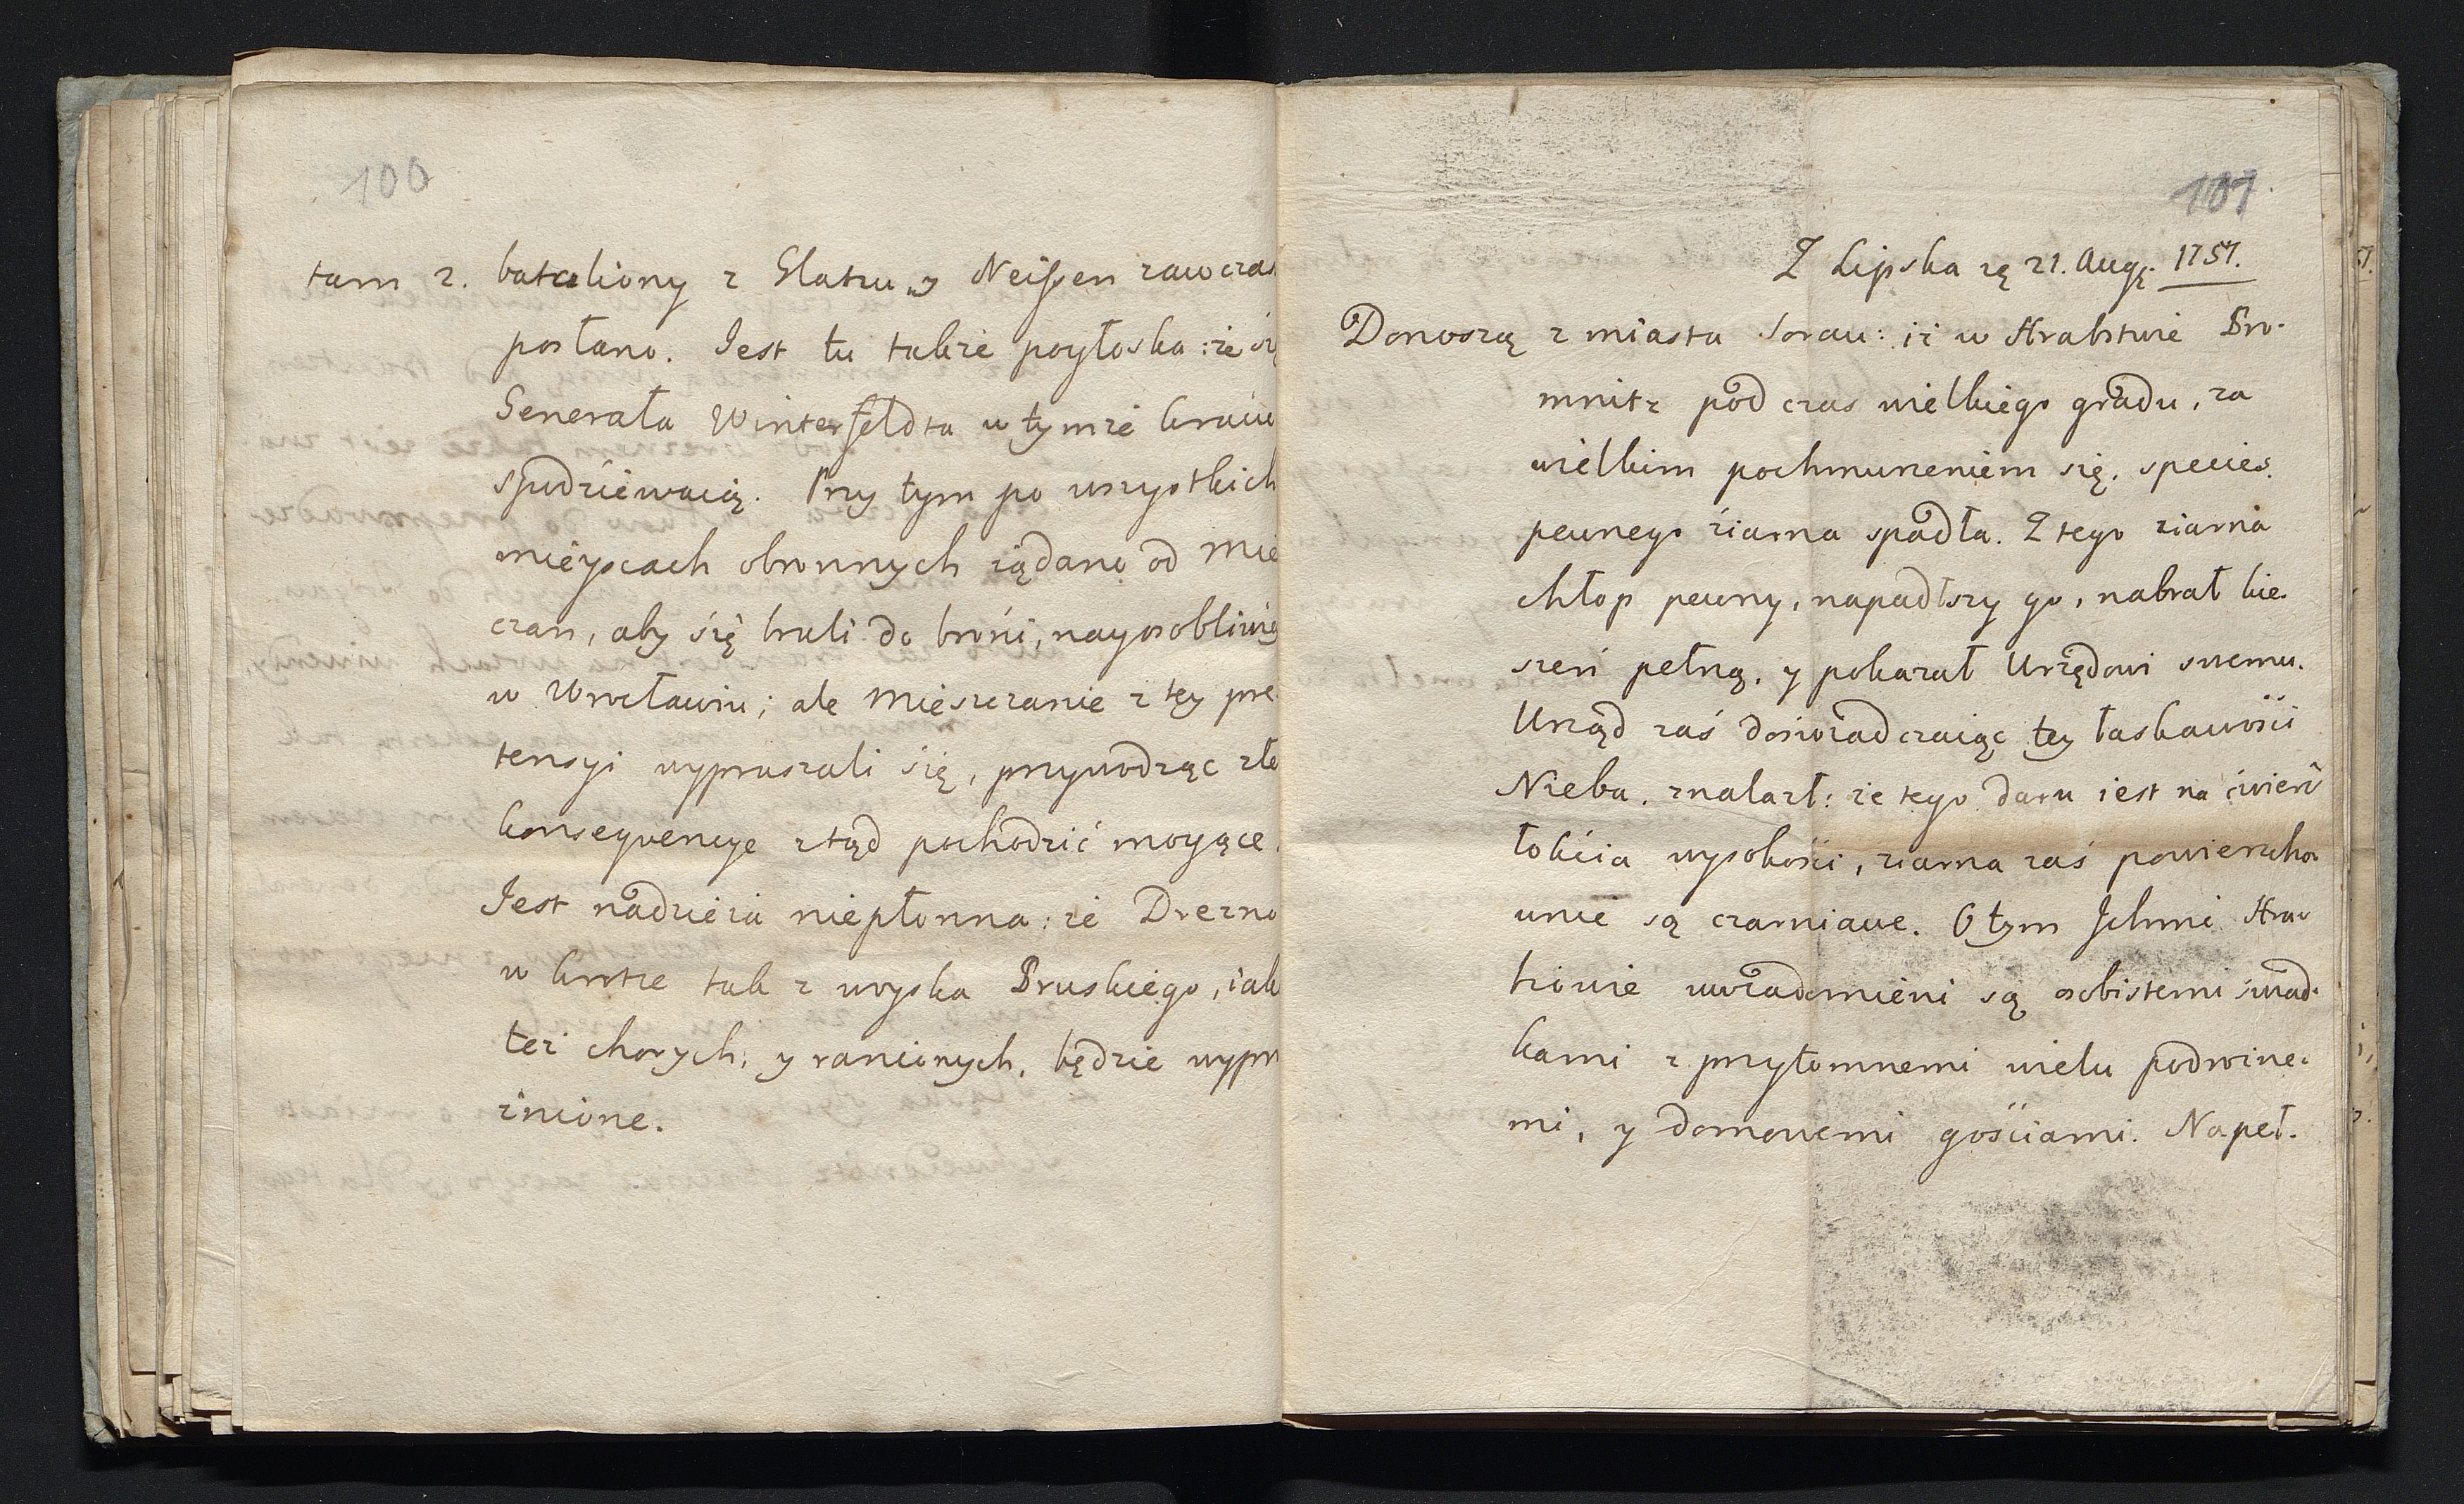 100
tam 2. bataliony z Glatzu y Neißen zawczas
posłano. Jest tu także pogłoska: że się
Generała Winterfeldta w tymże kraiu
spodziewaią. Przy tym po wszystkich
mieyscach obronnych żądano od Mie
czan, aby się brali do broni, nayosobliwię
w Wrocławiu; ale Mieszczanie z tey pre-
tensyi wypraszali się, przywodząc złe
konsequencye ztąd pochodzić mogące.
Jest nadzieia niepłonna: że Drezno
w krotze tak z woyska Pruskiego, iak
też chorych, y ranionych, będzie wypro
żnione.
101.
Z Lipska 21. Aug. 1757.
Donoszą z miasta Sorau: iż w Hrabstwie Pro-
mnitz pod czas wielkiego gradu, za
wielkim pochmurzeniem się, species
pewnego ziarna spadła. Z tego ziarna
chłop pewny, napadłszy go, nabrał kie-
szeń pełną, y pokazał Urzędowi swemu.
Urząd zaś doświadczaiąc tey łaskawości
Nieba, znalazł: że tego daru iest na ćwierć
łokćia wysokości, ziarna zaś powierzcho-
wnie są czarniawe. O tym Ichmć Hra-
biowie uwiadomieni są osobistemi świad-
kami z przytomnemi wielu podrożne-
mi, y domowemi gośćiami. Napeł-